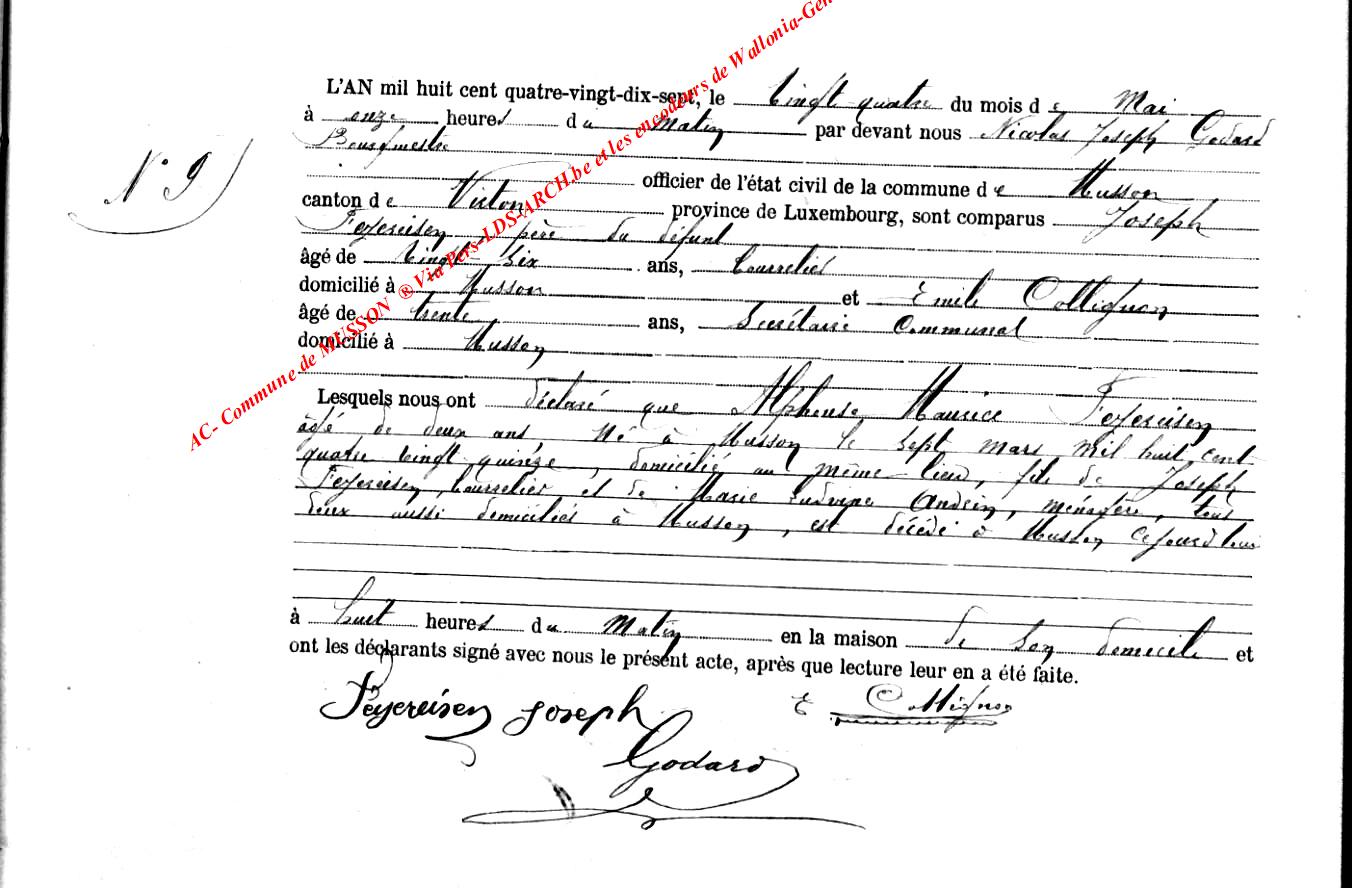 L'AN mil huit cent quatre-vingt-dix-sept, le vingt quatre du mois de Mai
à onze heures du Matin par devant nous Nicolas Joseph Godard
Bourgmestre
N° 9
officier de l'état civil de la commune de Musson
canton de Virton province de Luxembourg, sont comparus Joseph
Feyereisen, père du défunt
âgé de vingt six ans, bourrelier
domicilié à Musson et Emile Collignon
âgé de trente ans, Secrétaire Communal
domicilié à Musson
Lesquels nous ont déclaré que Alphonse Maurice Feyereisen
âgé de deux ans, né à Musson le sept mars mil huit cent
quatre vingt quinze, domicilié au même lieu, fils de Joseph
Feyereisen, bourrelier et de Marie Andrin, ménagère, tous
deux aussi domiciliés à Musson, est décédé à Musson cejourd'hui
à huit heures du Matin en la maison de son domicile et
ont les déclarants signé avec nous le présent acte, après que lecture leur en a été faite.
Feyereisen Joseph E Collignon
Godard
AC- Commune de MUSSON ® Via Pers-LDS-ARCH.be et les encodeurs de Wallonia-Gen